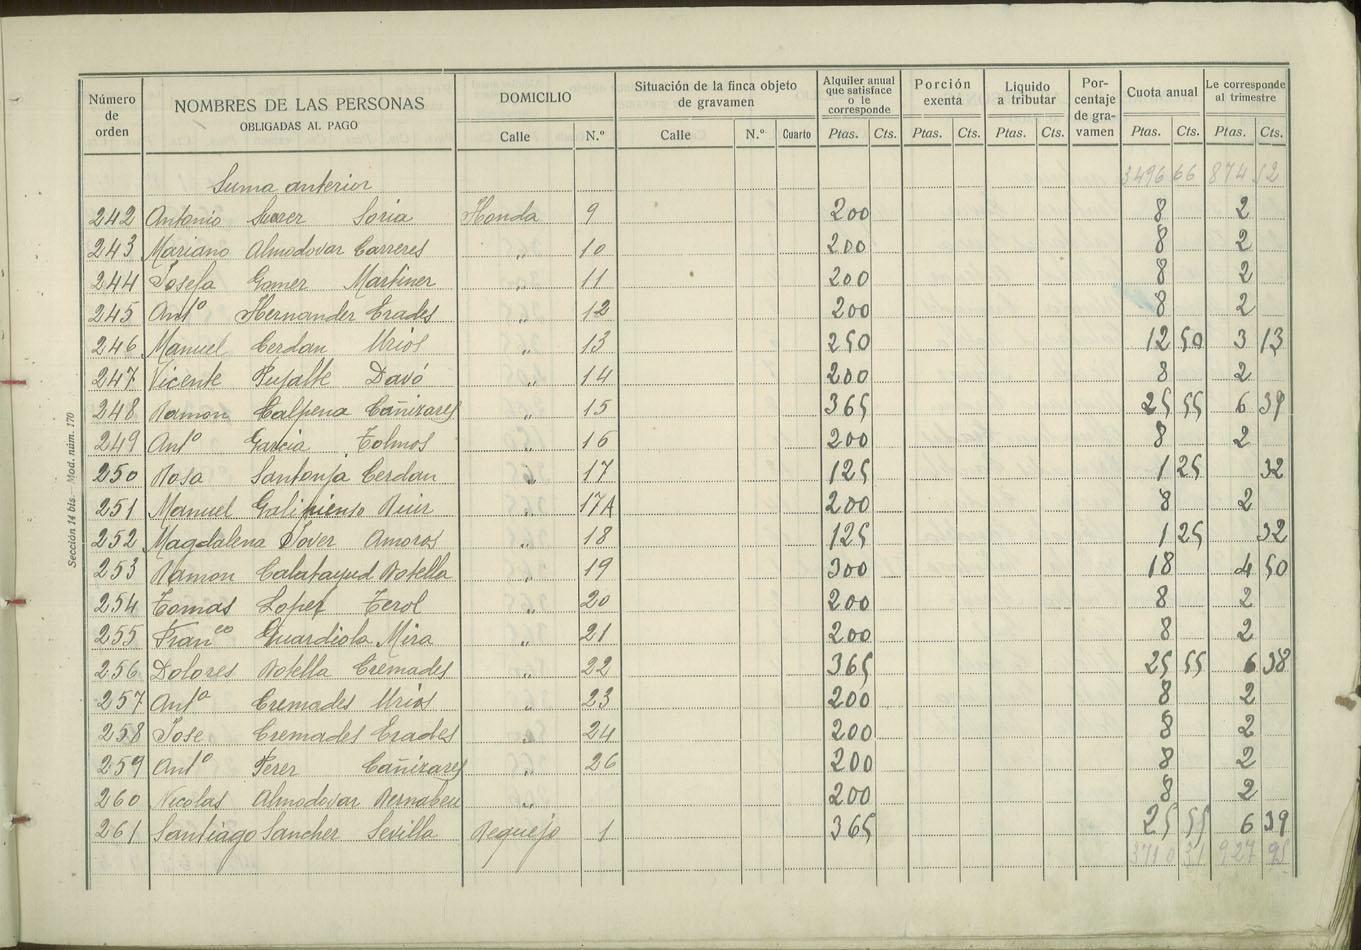 Número de orden NOMBRES DE LAS PERSONAS OBLIGADAS AL PAGO DOMICILIO Calle N.º Situación de la finca objeto de gravamen Calle N.º Cuarto Alquiler anual que satisface o le corresponde Ptas. Cts. Porción exenta Ptas. Cts. Liquido a tributar Ptas. Cts. Por-centaje de gra-vamen Cuota anual Ptas. Cts. Le corresponde al trimestre Ptas. Cts.
Suma anterior 3496 66 874 12
242 Antonio Suarer Soria Honda 9 200 8 2
243 Mariano Almodovar Carreres " 10 200 8 2
244 Josefa Gomer Martiner " 11 200 8 2
245 Antº Hernander Erades " 12 200 8 2
246 Manuel Cerdan Urios " 13 250 12 50 3 13
247 Vicente Pujalte Davó " 14 200 8 2
248 Ramon Calpena Cañizares " 15 365 25 55 6 39
249 Antº Garcia Tolmos " 16 200 8 2
250 Rosa Santonja Cerdan " 17 125 1 25 32
251 Manuel Galinienso Ruir " 17A 200 8 2
252 Magdalena Jover Amoros " 18 125 1 25 32
253 Ramon Calatayud Botella " 19 300 18 4 50
254 Tomas Loper Terol " 20 200 8 2
255 Franco Guardiola Mira " 21 200 8 2
256 Dolores Botella Cremades " 22 365 25 55 6 38
257 Antª Cremades Urios " 23 200 8 2
258 Jose Cremades Erades " 24 200 8 2
259 Antº Perer Cañizares " 26 200 8 2
260 Nicolas Almodovar Bernabeu " 200 8 2
261 Santiago Sancher Sevilla Requejo 1 365 25 55 6 39
3710 31 927 95
Sección 14 bis.—Mod. núm. 170